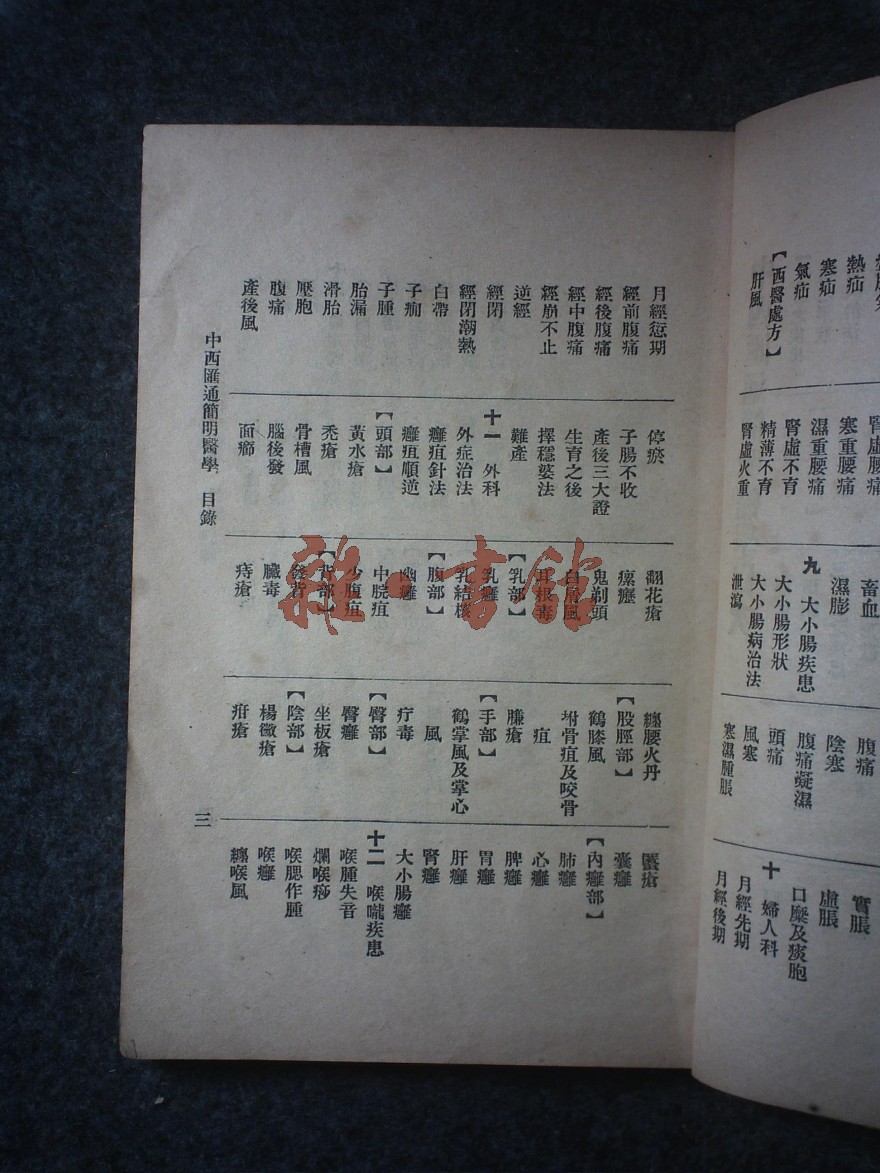 熱疝
寒疝
氣疝
【西醫處方】
肝風
腎虛腰痛
寒重腰痛
濕重腰痛
腎虛不育
精薄不育
腎虛火重
畜血
濕膨
九 大小腸疾患
大小腸形狀
大小腸病治法
泄瀉
腹痛
陰寒
腹痛凝濕
頭痛
風寒
寒濕腫脹
實脹
虛脹
口糜及痰胞
十 婦人科
月經先期
月經後期
月經愆期
經前腹痛
經後腹痛
經中腹痛
經崩不止
逆經
經閉
經閉潮熱
白帶
子痫
子腫
胎漏
滑胎
壓胞
腹痛
產後風
停瘀
子腸不收
產後三大證
生育之後
擇穩婆法
難產
十一 外科
外症治法
癰疽針法
癰疽順逆
【頭部】
黃水瘡
禿瘡
骨槽風
腦後發
面癤
翻花瘡
瘰癧
鬼剃頭
白屑風
耳根毒
【乳部】
乳癰
乳結核
【腹部】
幽癰
中脘疽
少腹疽
【背部】
發背
臟毒
痔瘡
纏腰火丹
【股脛部】
鶴膝風
坿骨疽及咬骨
疽
臁瘡
【手部】
鶴掌風及掌心
風
疔毒
【臀部】
臀癰
坐板瘡
【陰部】
楊黴瘡
疳瘡
䘌瘡
囊癰
【內癰部】
肺癰
心癰
脾癰
胃癰
肝癰
腎癰
大小腸癰
十二 喉嚨疾患
喉腫失音
爛喉痧
喉腮作腫
喉癰
纏喉風
中西匯通簡明醫學 目錄
三
雜·書館